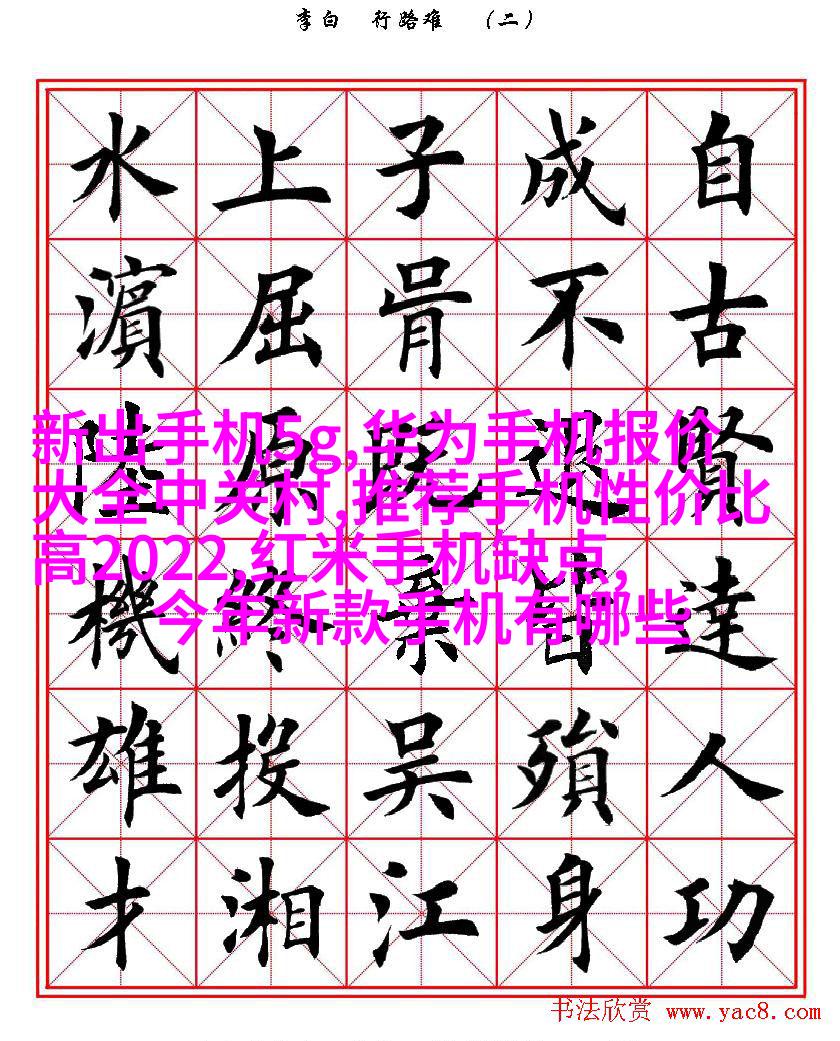 李白 行路难 （二）
自古賢達人功
成不退皆殞身
子胥既棄吳江
上屈原終投湘
水濱陸機雄才
新出手机5g,华为手机报价
大全中关村,推荐手机性价比
高2022,红米手机缺点,
今年新款手机有哪些
书法欣赏 www.yac8.com